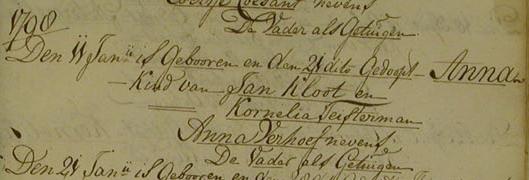 nevens
De Vader als Getuigen
1798
Den 11 Janu is Gebooren en den 21 dito Gedoopt - Anna
Kind van Jan Kloot en
Kornelia Teisterman
Anna Verhoef nevens
De Vader als Getuigen
Den 21 Janu is Gebooren en den